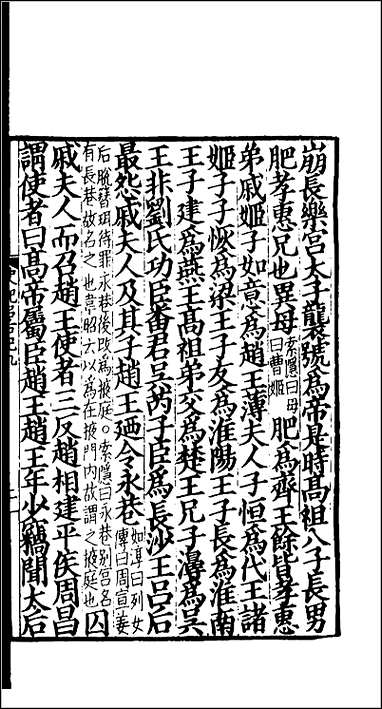 崩長樂宮太子襲號爲帝是時髙祖八子長男
肥孝惠兄也異母索隱曰母曰曹姬肥爲齊王餘皆孝惠
弟戚姬子如意爲趙王薄夫人子恒爲代王諸
姬子子恢爲梁王子友爲淮陽王子長爲淮南
王子建爲燕王髙祖弟交爲楚王兄子濞爲吳
王非劉氏功臣番君吳芮子臣爲長沙王吕后
最怨戚夫人及其子趙王廼令永巷如淳曰列女傳曰周宣姜
后脫簪珥待罪永巷後改爲掖庭○索隱曰永巷别宮名有長巷故名之也韋昭云以爲在掖門内故謂之掖庭也囚
戚夫人而召趙王使者三反趙相建平侯周昌
謂使者曰髙帝屬臣趙王趙王年少竊聞太后